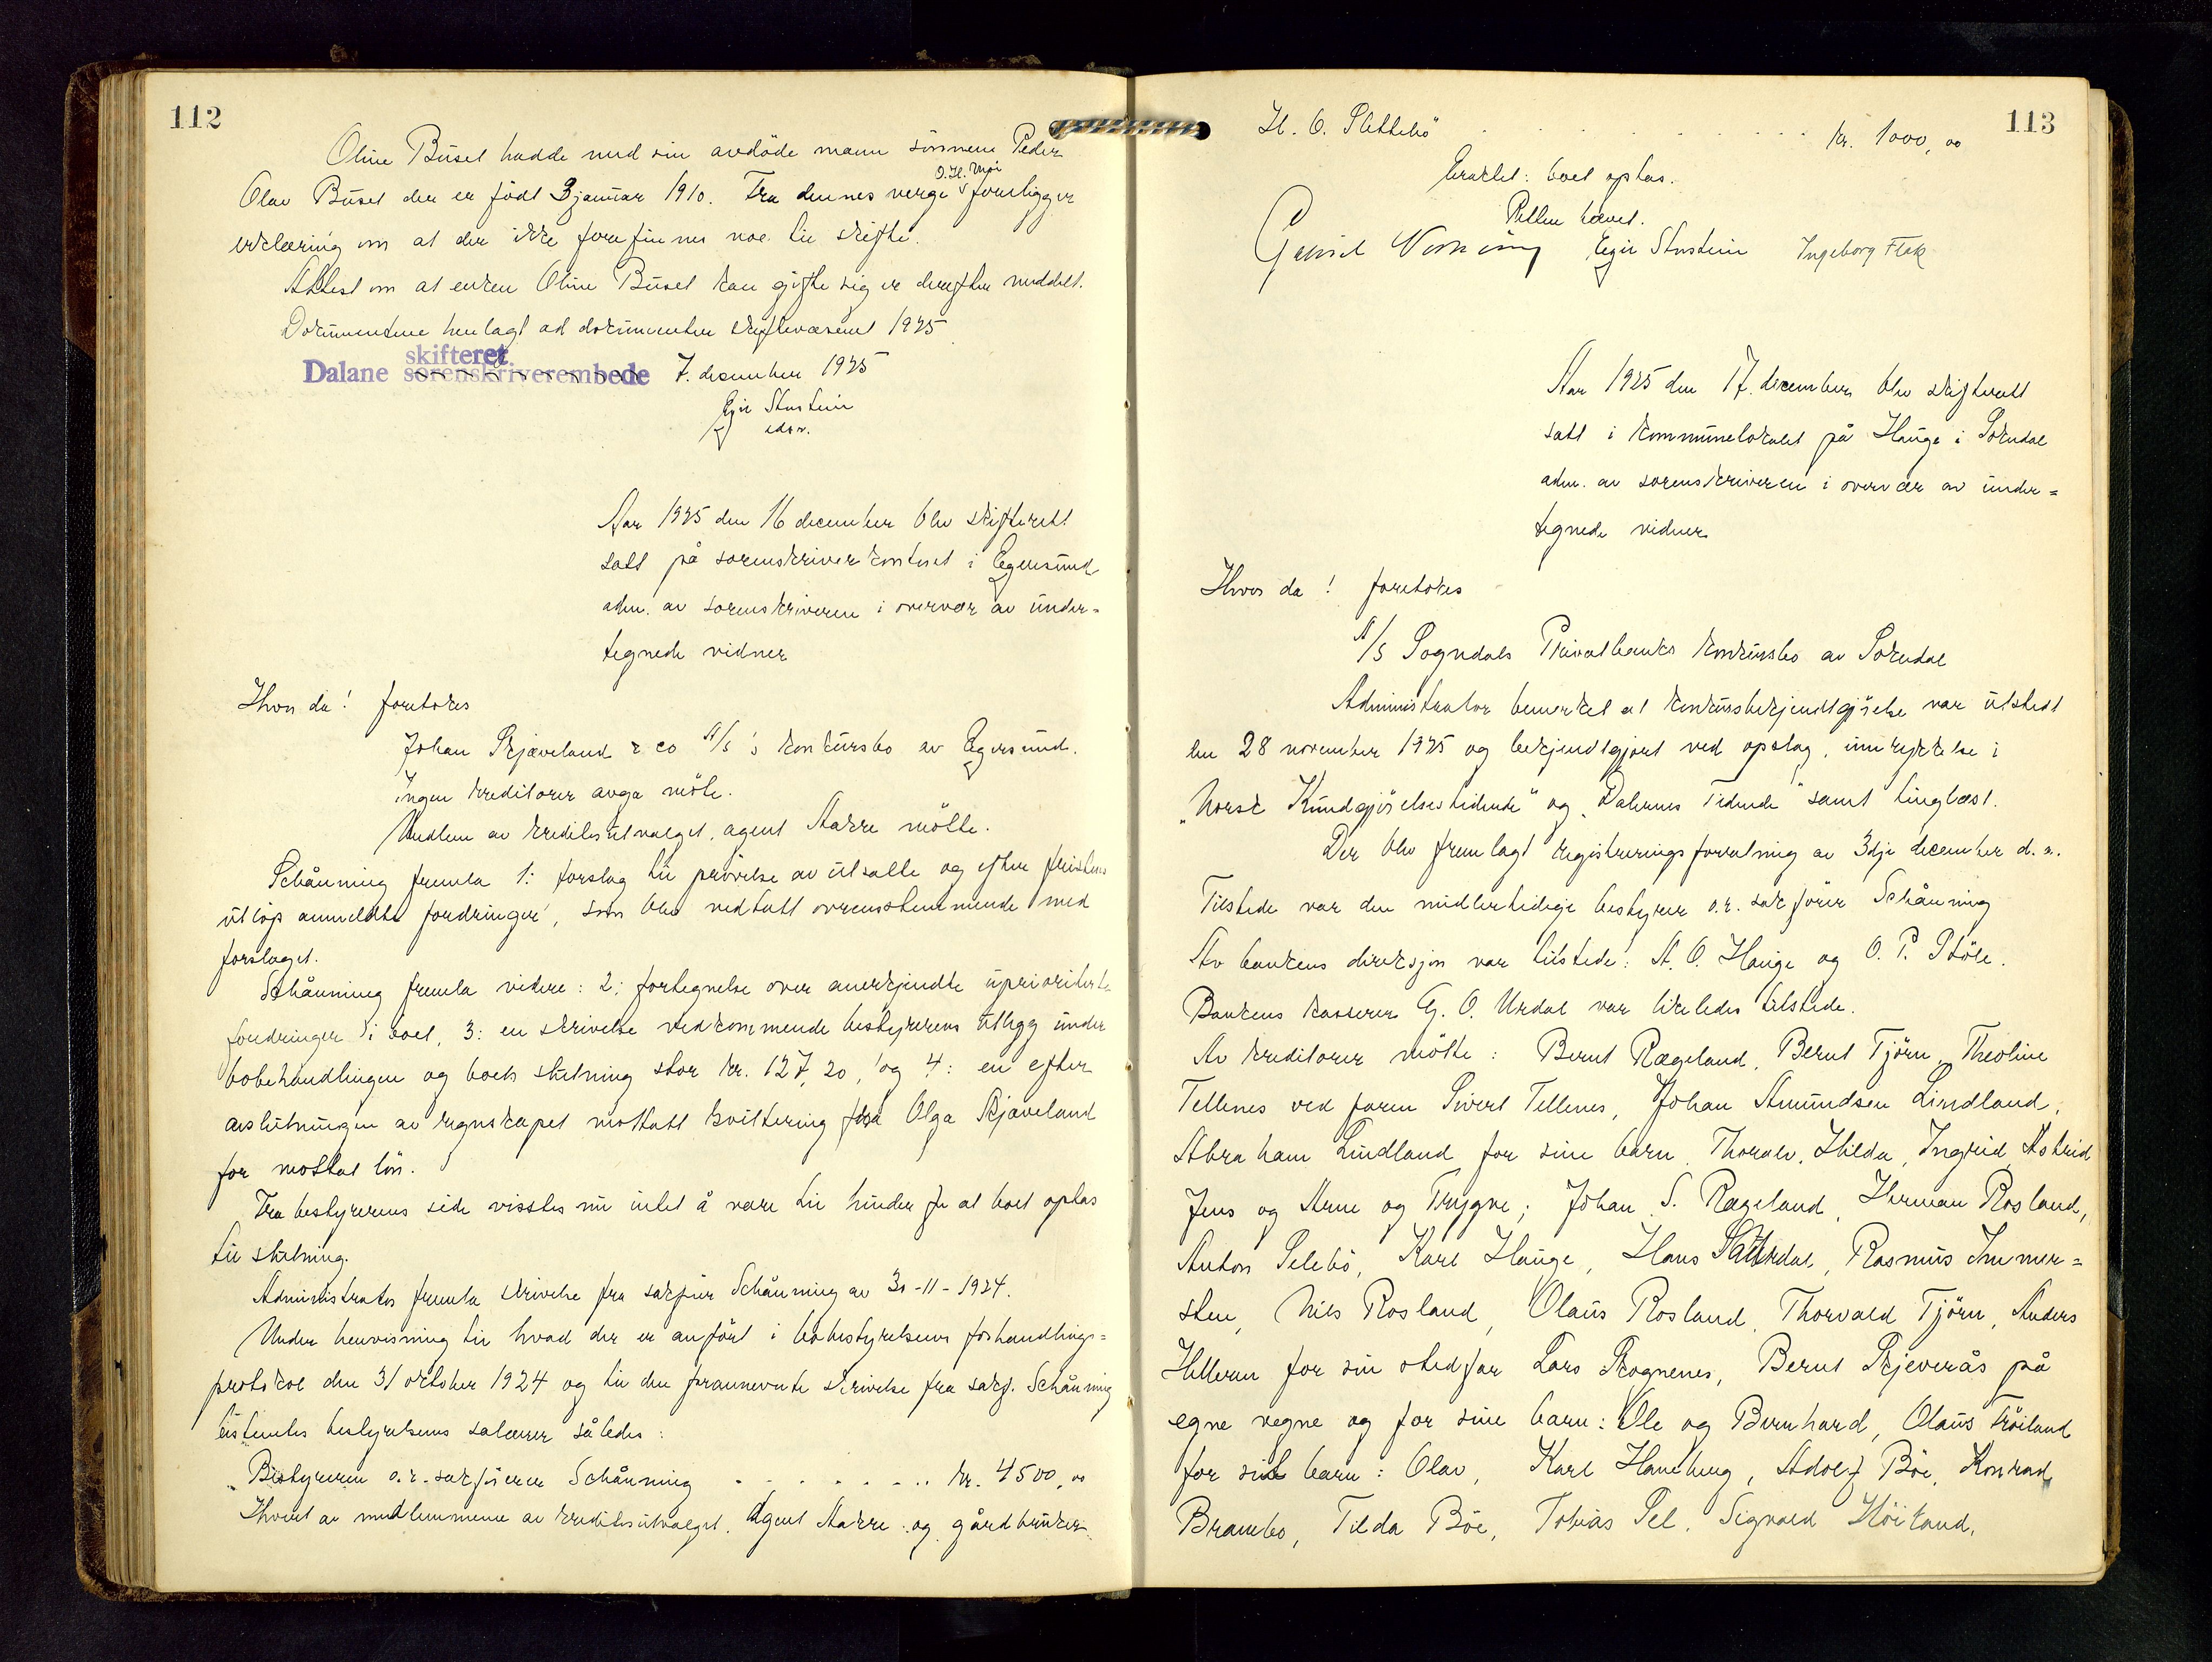 112
Oline Büsel hadde med sin avdöde mann sönnen Peder
O. H. Moi
Olav Büsel der er födt 3 januar 1910. Fra dennes verge v foreligger
erklæring om at der ikke forefinnes noe til skifte.
Attest om at enken Oline Büsel kan gifte sig er derefter meddelt.
Dokumentene henlagt ad dokumenter skiftevæsenet 1925
skifteret
Dalane sorenskriverembede 7. desember 1925
Egil Stenstein
edsv.
Aar 1925 den 16 december blev skifterett
satt på sorenskriverkontoret i Egersund
adm. av sorenskriveren i overvær av under=
tegnede vidner
Hvor da! foretokes
Johan Skjæveland & co A/S 's konkursbo av Egersund.
Ingen kreditorer avga möte.
Medlem av kreditorutvalget, agent Aakre mötte.
Schånning fremla 1: forslag til prövelse av utsatte og efter fristens
utlöp anmeldte fordringer, som blev vedtatt overensstemmende med
forslaget.
Schånning fremla videre: 2: fortegnelse over anerkjendte uprioriterte
fordringer i boet, 3: en skrivelse vedkommende bestyrerens utlegg under
bobehandlingen og boets slutning stor kr. 127,20, og 4: en efter
avslutningen av regnskapet mottatt kvittering fra Olga Skjæveland
for mottat lön.
Fra bestyrerens side visstes nu intet å være til hinder for at boet optas
til slutning.
Administrator fremla skrivelse fra sakförer Schånning av 30-11-1924.
Under henvisning til hvad der er anfört i bobestyrelsens forhandlings=
protokol den 31 oktober 1924 og til den forannevnte skrivelse fra sakf. Schånning
bestemtes bestyrelsens salærer således:
"Bestyreren o.r.sakförer Schånning . . . . . . . . kr. 4500,00
Hvert av medlemmene av kreditorutvalget, Agent Aakre og gårdbruker
113
H. O. Slettebö . . . . . . . . . . kr. 1000,00
Eraktet: boet optas.
Retten hævet.
Egil Stenstein Ingeborg Flek
Aar 1925 den 17. december blev skifterett
satt i kommunelokalet på Hauge i Sokndal
adm. av sorenskriveren i overvær av under=
tegnede vidner
Hvor da! foretokes
A/S Sogndals Privatbanks konkursbo av Sokndal
Administrator bemerket at konkursbekjendtgjörelse var utstedt
den 28 november 1925 og bekjendtgjort ved opslag, innrykkelse i
"Norsk Kundgjörelsestidende" og "Dalernes Tidende" samt tinglæst.
Der blev fremlagt registreringsforretning av 3dje december d. a.
Tilstede var den midlertidige bestyrer o.r. sakförer Schånning
Av bankens direksjon var tilstede: A. O. Hauge og O. P. Stöle.
Bankens kasserer G. O. Urdal var likeledes tilstede.
Av kreditorer mötte: Bernt Rægeland, Bernt Tjörn, Theoline
Tellenes ved faren Sivert Tellenes, Johan Amundsen Lindland,
Abraham Lindland for sine barn Thoralv, Hilda, Ingrid, Astrid
Jens og Arne og Trygve; Johan S. Rægeland, Herman Rosland,
Anton Selebö, Karl Hauge, Hans Sæterdal, Rasmus Immer=
sten, Nils Rosland, Olaus Rosland, Thorvald Tjörn, Anders
Helleren for sin stedfar Lars Skognenes, Bernt Skjeverås på
egne vegne og for sine barn: Ole og Bernhard, Olaus Fröiland
for sit barn: Olav, Karl Haneberg, Adolf Böe, Konrad
Brambo, Tilda Böe, Tobias Sel, Sigvald Höiland,